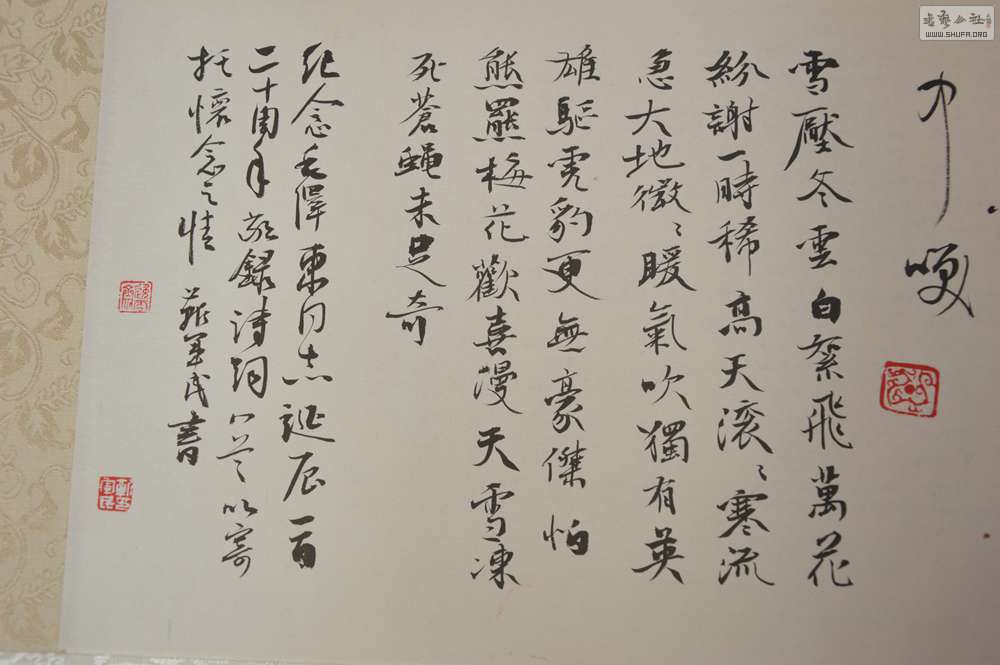 中咲
雪壓冬雲白絮飛萬花
紛謝一時稀高天滾〻寒流
急大地微〻暖氣吹獨有英
雄驅虎豹更無豪傑怕
熊羆梅花歡喜漫天雪凍
死蒼蠅未足奇
紀念毛澤東同志誕辰一百
二十周年敬録詩詞八首以寄
托懷念之情 民書
書藝公社
WWW.SHUFA.ORG